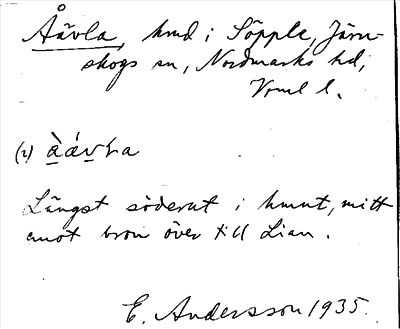 Åävla, hmd i Söpple, Järn-
skogs sn, Nordmarks hd,
Vrml l.
(2) àávla
Längst söderut i hmnt, mitt
emot bron över till Lian.
E. Andersson 1935.